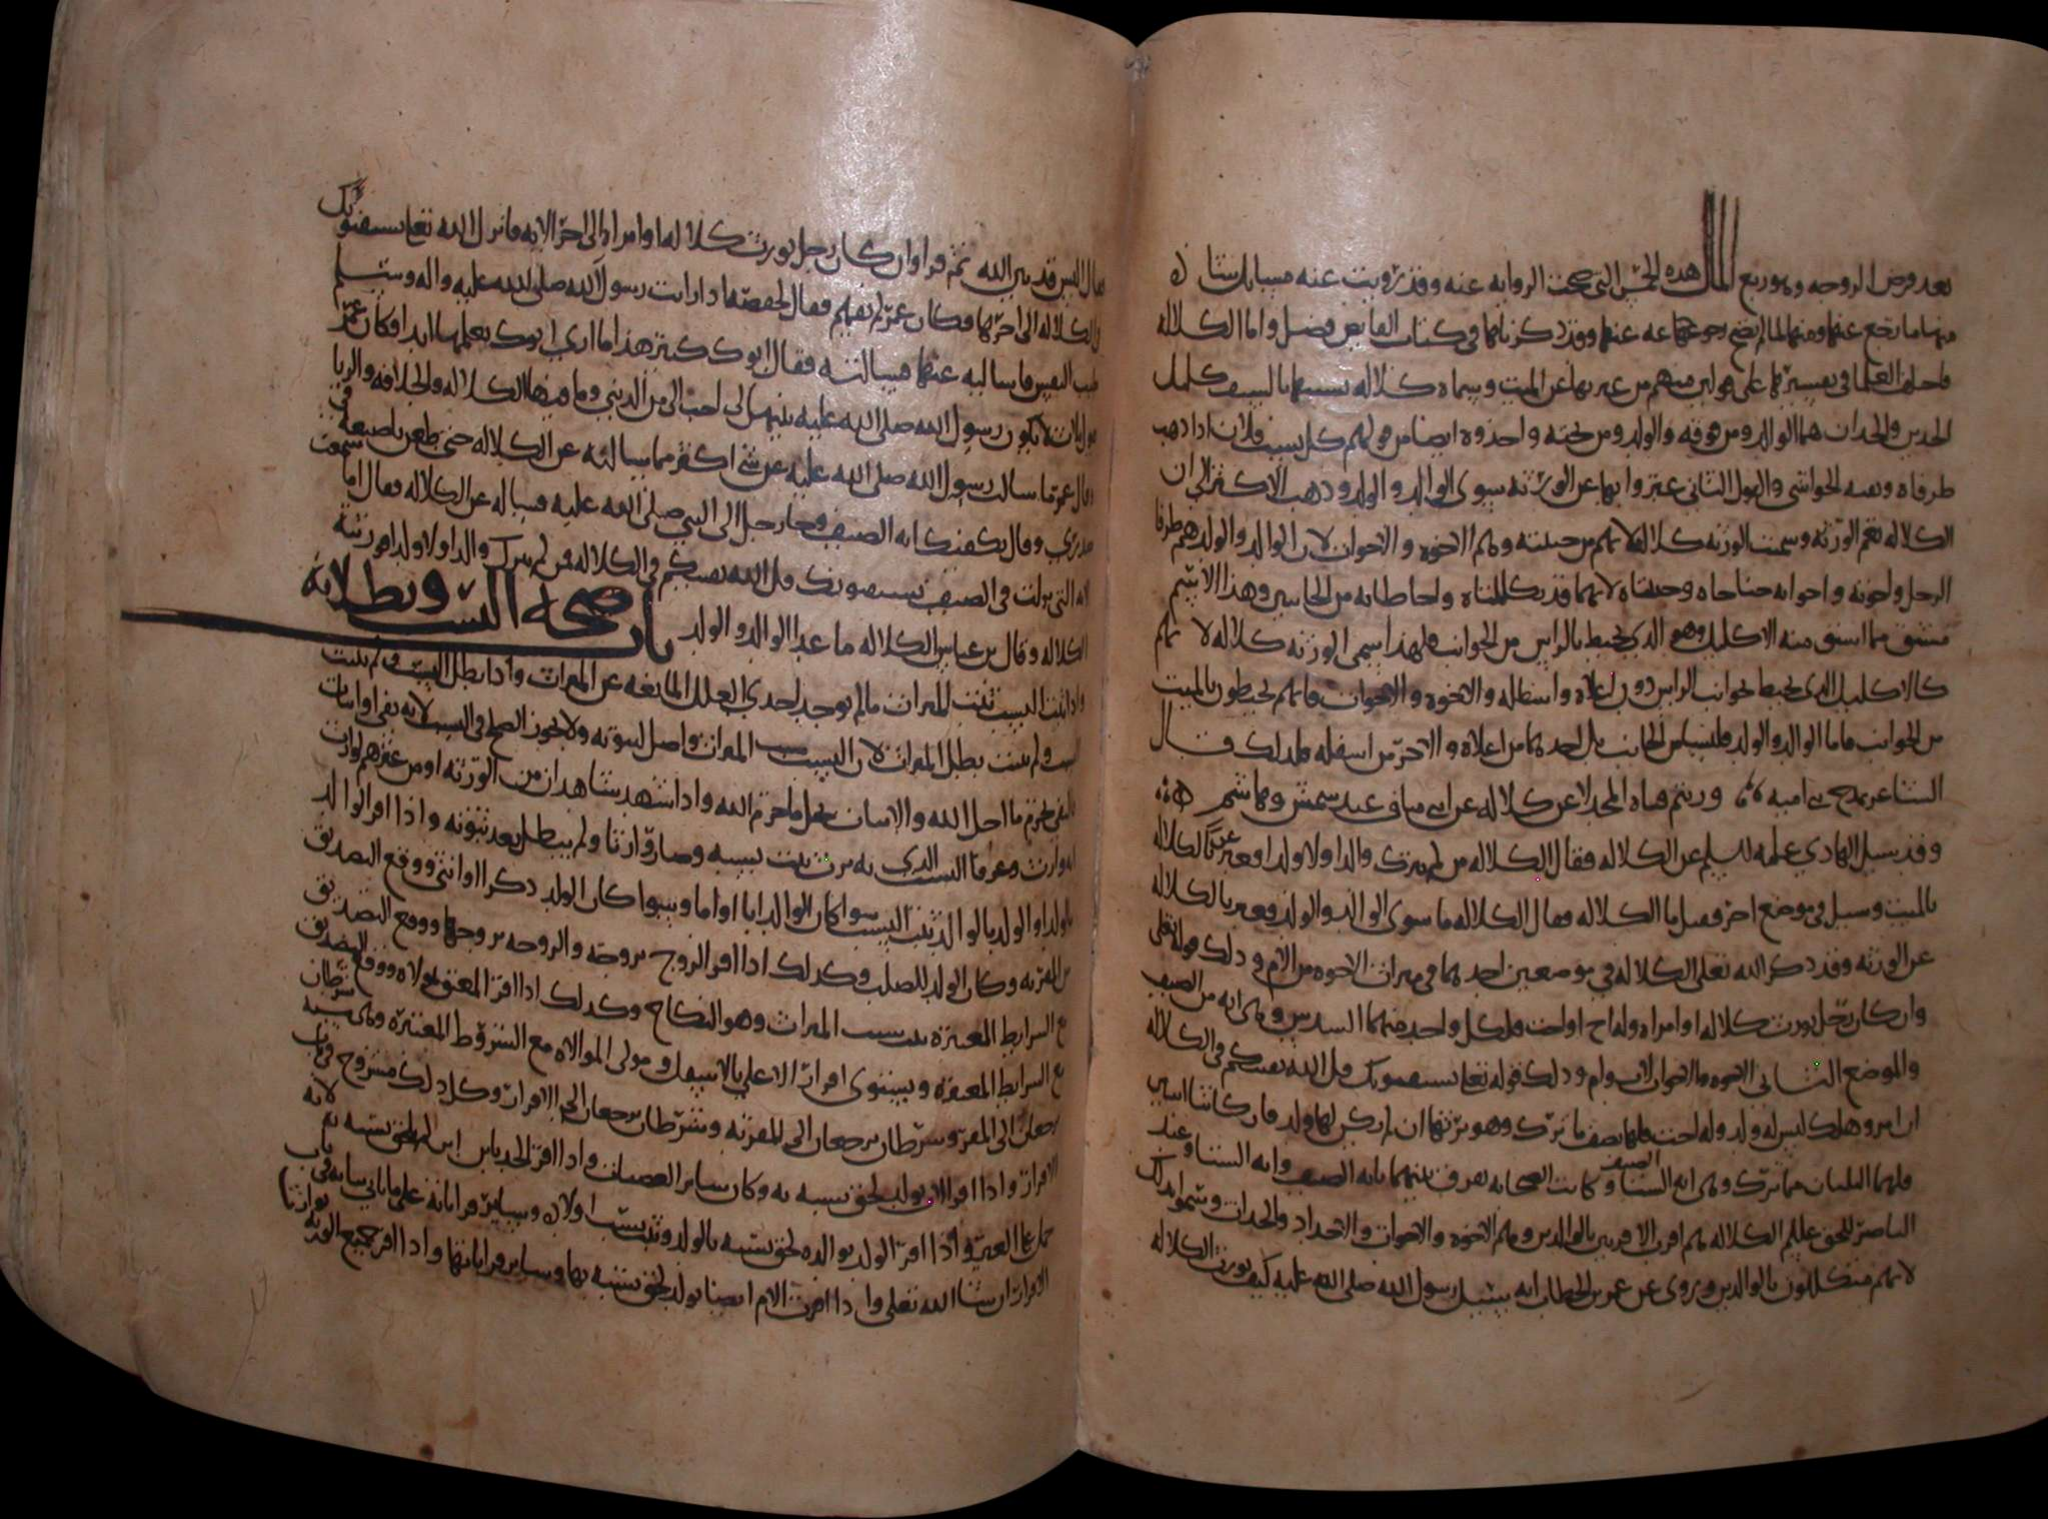 بعد فرض الزوجه وهو ربع المال هذه الخمس التي صحت الروايه عنه وقد رويت عنه مسايل شتا
منها ما رجع عنها ومنها لما لم يصح رجوعهما عنه عنها وقد ذكرناها في كتاب الفايض فصل واما الكلاله
فاختلف العلما في تفسيرها على قولين فمنهم من عبر بها عن الميت وسماه كلاله تشبيها بالسيف كلما كل
الحدين والحدان هما الوالد ومن فوقه والولد ومن تحته واخذوه ايضا من قولهم كل نسب فلان اذا ذهب
طرفاه وبقيه الحواشي والقول الثاني عبروا بها عن الورثه سوى الوالد والولد وذهب الاكثر الى ان
الكلاله نعم الورثه وسميت الورثه كلاله لانهم من جنبته وهم الاخوه والاخوات لان الوالد والولد هم طرفا
الرجل واخوته واخواته جناحاه وحيقتاه لانهما قد تكللتاه واحاطتا به من الجانبين وهذا الاسم
مشتق مما اشتق منه الاكليل وهو الذي يحيط بالراس من الجوانب فلهذا سمي الورثه كلاله لانهم
كالاكليل الذي يحيط بجوانب الراس دون اعلاه واسفله والاخوه والاخوات فانهم يحيطون بالميت
من الجوانب فاما الوالد والولد فليسا من الجانب بل احدهما من اعلاه والاخر من اسفله فلذلك قال
الشاعر يمدح بني اميه ورثتم قناه المجد لا عن كلاله عن ابني مناف عبد شمس وهاشم
وقد سيل الهادي عليه السلم عن الكلاله فقال الكلاله من لم يترك والدا ولا ولدا فعبر عن الكلاله
بالميت وسيل في موضع اخر فقيل ما الكلاله فقال الكلاله ما سوى الوالد والولد فعبر بالكلاله
عن الورثه وقد ذكر الله تعلى الكلاله في موضعين احدهما في ميراث الاخوه من الام وذلك قوله تعلى
وان كان رجل يورث كلاله او امراه وله اخ او اخت فلكل واحد منهما السدس وهي ايه من الصيف
والموضع الثاني الاخوه والاخوات لاب وام وذلك قوله تعلى يستفتونك قل الله يفتيكم في الكلاله
ان امرو هلك ليس له ولد وله اخت فلها نصف ما ترك وهو يرثها ان لم يكن لها ولد فان كانتا اثنتين
فلهما الثلثان مما ترك وهي ايه الشتا وكانت الصحابه تعرف بينهما بايه الصيف وايه الشتا وعند
الناصر للحق عليلم الكلاله هم اقرب الاقربين بالوالدين وهم الاخوه والاخوات والاجداد والجدات وسموا بذلك
لانهم متكللون بالوالدين وروي عن عمر بن الخطاب انه سيل رسول الله صلى الله عليه كيف يورث الكلاله
فقال اليس قد بين الله ثم قرا وان كان رجل يورث كلاله او امراه الى اخر الايه فانزل الله تعلى يستفتونك
في الكلاله الى اخرها فكان عمر لم يفهم فقال لحفصه اذا رايت رسول الله صلى الله عليه واله وسلم
طيب النفس فاساليه عنها فسالته فقال ابوك ذكر هذا ما ارى ابوك يعلمها ابدا فكان عمر
يقول ثلاث لان يكون رسول الله صلى الله عليه بينهن لي احب الي من الدنيا وما فيها الكلاله والخلافه والربا
وقال عمر ما سالت رسول الله صلى الله عليه عن شي اكثر مما سالته عن الكلاله حتى طعن باصبعه في
صدري وقال يكفيك ايه الصيف وجا رجل الى النبي صلى الله عليه فساله عن الكلاله فقال اما سمعت
الايه التي نزلت في الصيف يستفتونك قل الله يفتيكم في الكلاله فمن لم يترك والدا ولا ولدا فورثته
الكلاله وقال بن عباس الكلاله ما عدا الوالد والولد باب صحه النسب وبطلانه
واذا ثبت النسب ثبت الميراث ما لم يوجد احدى العلل المانعه عن الميراث واذا بطل النسب
ولم يثبت بطل الميراث لان النسب سبب الميراث واصل لثبوته ولا يجوز الصلح في النسب لانه
يحرم ما احل الله والانسان يحل ما حرم الله واذا شهد شاهدان من الورثه او من غيرهم لوارث
الوارث وعرفا النسب الذي به يرث ثبت نسبه وصار وارثا ولم يبطل بعد ثبوته واذا اقر الوالد
بالولد او الولد بالوالد ثبت النسب سوا كان الوالد ابا او اما وسوا كان الولد ذكرا او انثى ووقع التصديق
من المقر به وكان الولد للصلب وكذلك اذا اقر الزوج بزوجته والزوجه بزوجها ووقع التصديق
مع الشرايط المعتبره ثبت سبب الميراث وهو النكاح وكذلك اذا اقر المعتق بمولاه ووقع التصديق
مع الشرايط المعتبره ويستوي اقرار الاعلى بالاسفل ومولى الموالاه مع الشروط المعتبره وهي ستة شرطان
يرجعان الى المقر وشرطان يرجعان الى المقر به وشرطان يرجعان الى الاقرار وكل ذلك مشروح في باب
الاقرار واذا اقر الاب بولد لحق نسبه به وكان ساير العصبات واذا اقر الجد بابن ابن لم يلحق نسبه به لانه
حمل على الغير واذا اقر الولد بوالده لحق نسبه بالولد وثبت نسب اولاده وساير قراباته على ما ياتي بيانه في باب
الاقرار ان شا الله تعلى واذا اقرت الام ايضا بولد لحق نسبه بها وساير قراباتها واذا اقر جميع الورثه بوارث